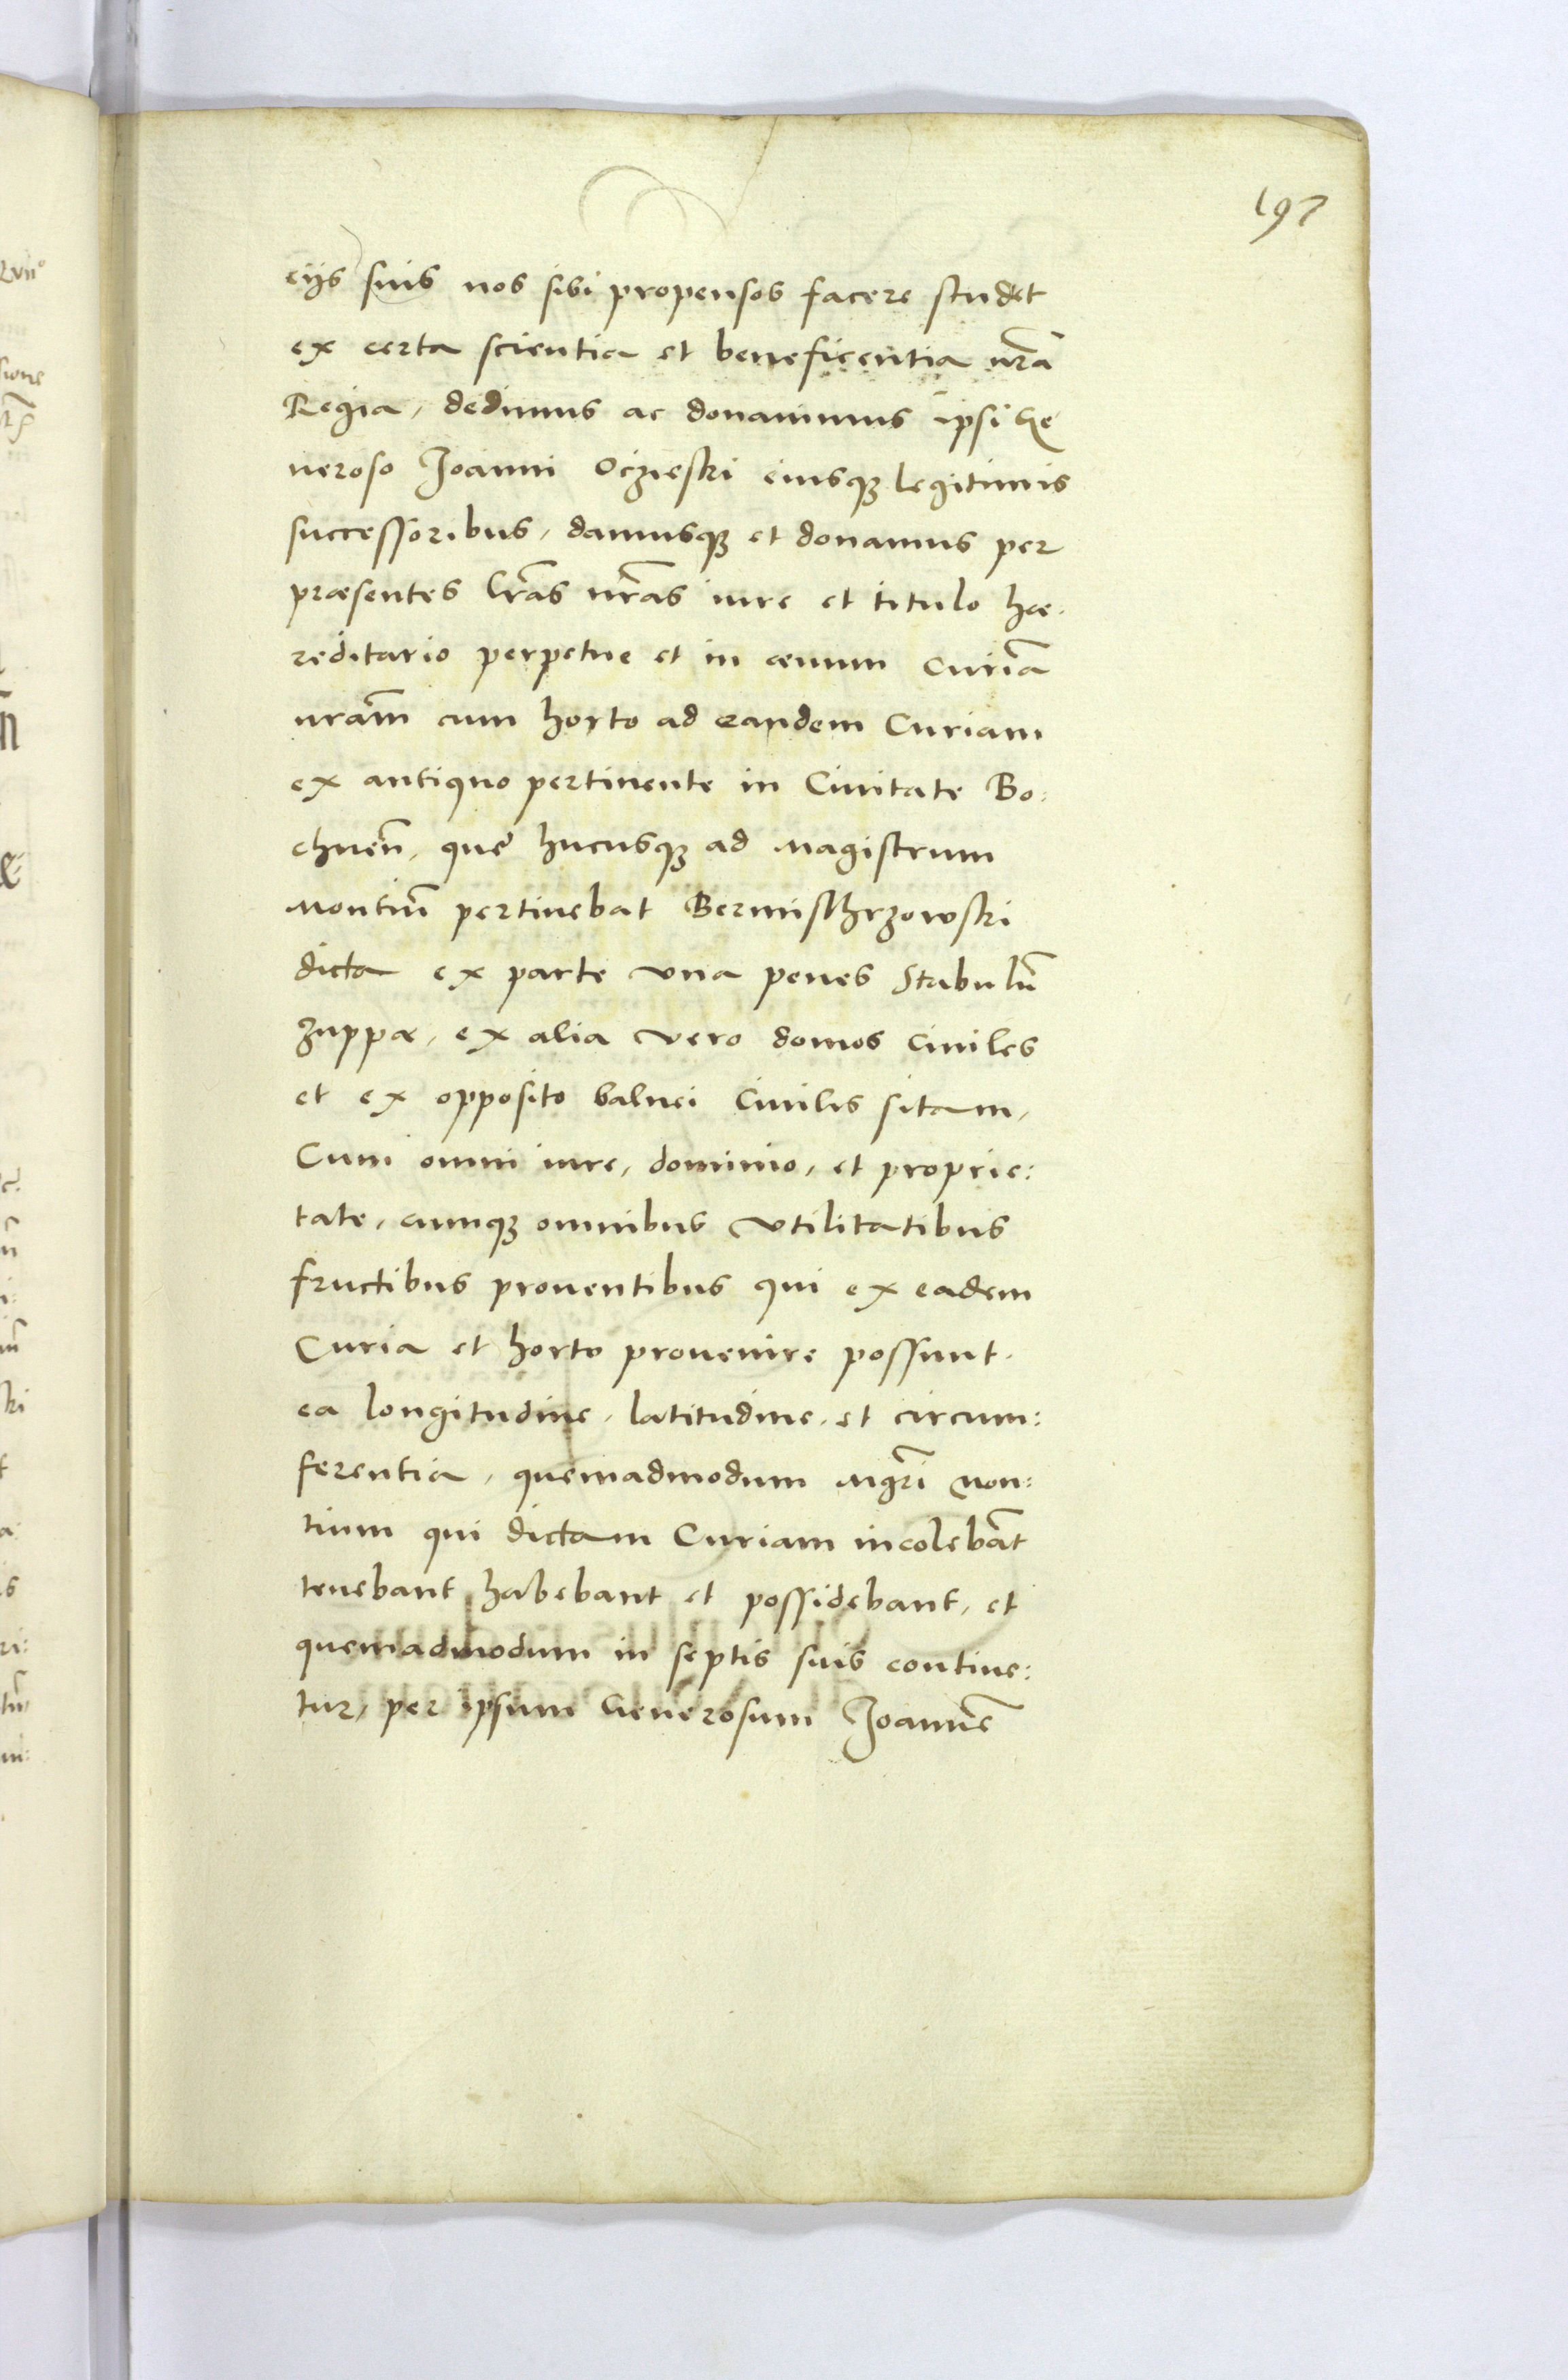 197
cijs suis nos sibi propensos facere studet
ex certa scientia et beneficentia nrã
Regia, dedimus ac donauimus ipsi Ge
neroso Joanni Oczieski eiusqꝫ legitimis
successoribus, damusqꝫ et donamus per
præsentes lr̃as nr̃as iure et titulo hæ.
reditario perpetue et in æuum Curiã
nrãm cum horto ad eandem Curiam
ex antiquo pertinente in Ciuitate Bo:
chneñ, que hucusqꝫ ad Magistrum
Montiũ pertinebat
dicta ex parte vna penes Stabulũ
zuppæ, ex alia vero domos Ciuiles
et ex opposito balnei Ciuilis sitam,
Cum omni iure, dominio, et proprie:
tate, cumqꝫ omnibus vtilitatibus
fructibus prouentibus qui ex eadem
Curia et horto prouenire possunt.
ea longitudine, latitudine, et circum:
ferentia, quemadmodum Mgr̃i Mon:
tium qui dictam Curiam incolebãt
tenebant habebant et possidebant, et
quemadmodum in septis suis contine:
tur, per ipsum Generosum Joannẽ